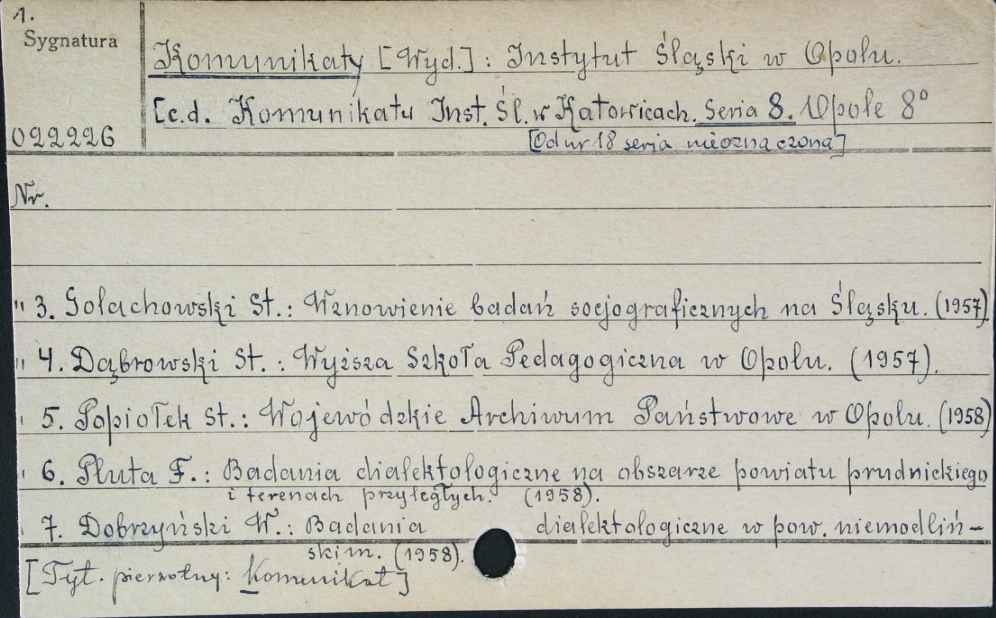 1.
Sygnatura
022226
Komunikaty [Wyd.]: Instytut Śląski w Opolu.
[c.d. Komunikatu Inst. Śl. w Katowicach. Seria 8. Opole 8°
[Od nr 18 seria nieoznaczona]
Nr.
" 3. Gołachowski St.: Wznowienie badań socjograficznych na Śląsku. (1957)
" 4. Dąbrowski St.: Wyższa Szkoła Pedagogiczna w Opolu. (1957).
" 5. Popiołek St.: Wojewódzkie Archiwum Państwowe w Opolu. (1958)
" 6. Pluta F.: Badania dialektologiczne na obszarze powiatu prudnickiego
i terenach przyległych. (1958).
" 7. Dobrzyński W.: Badania dialektologiczne w pow. niemodliń-
skim. (1958).
[Tyt. pierwotny: Komunikat]